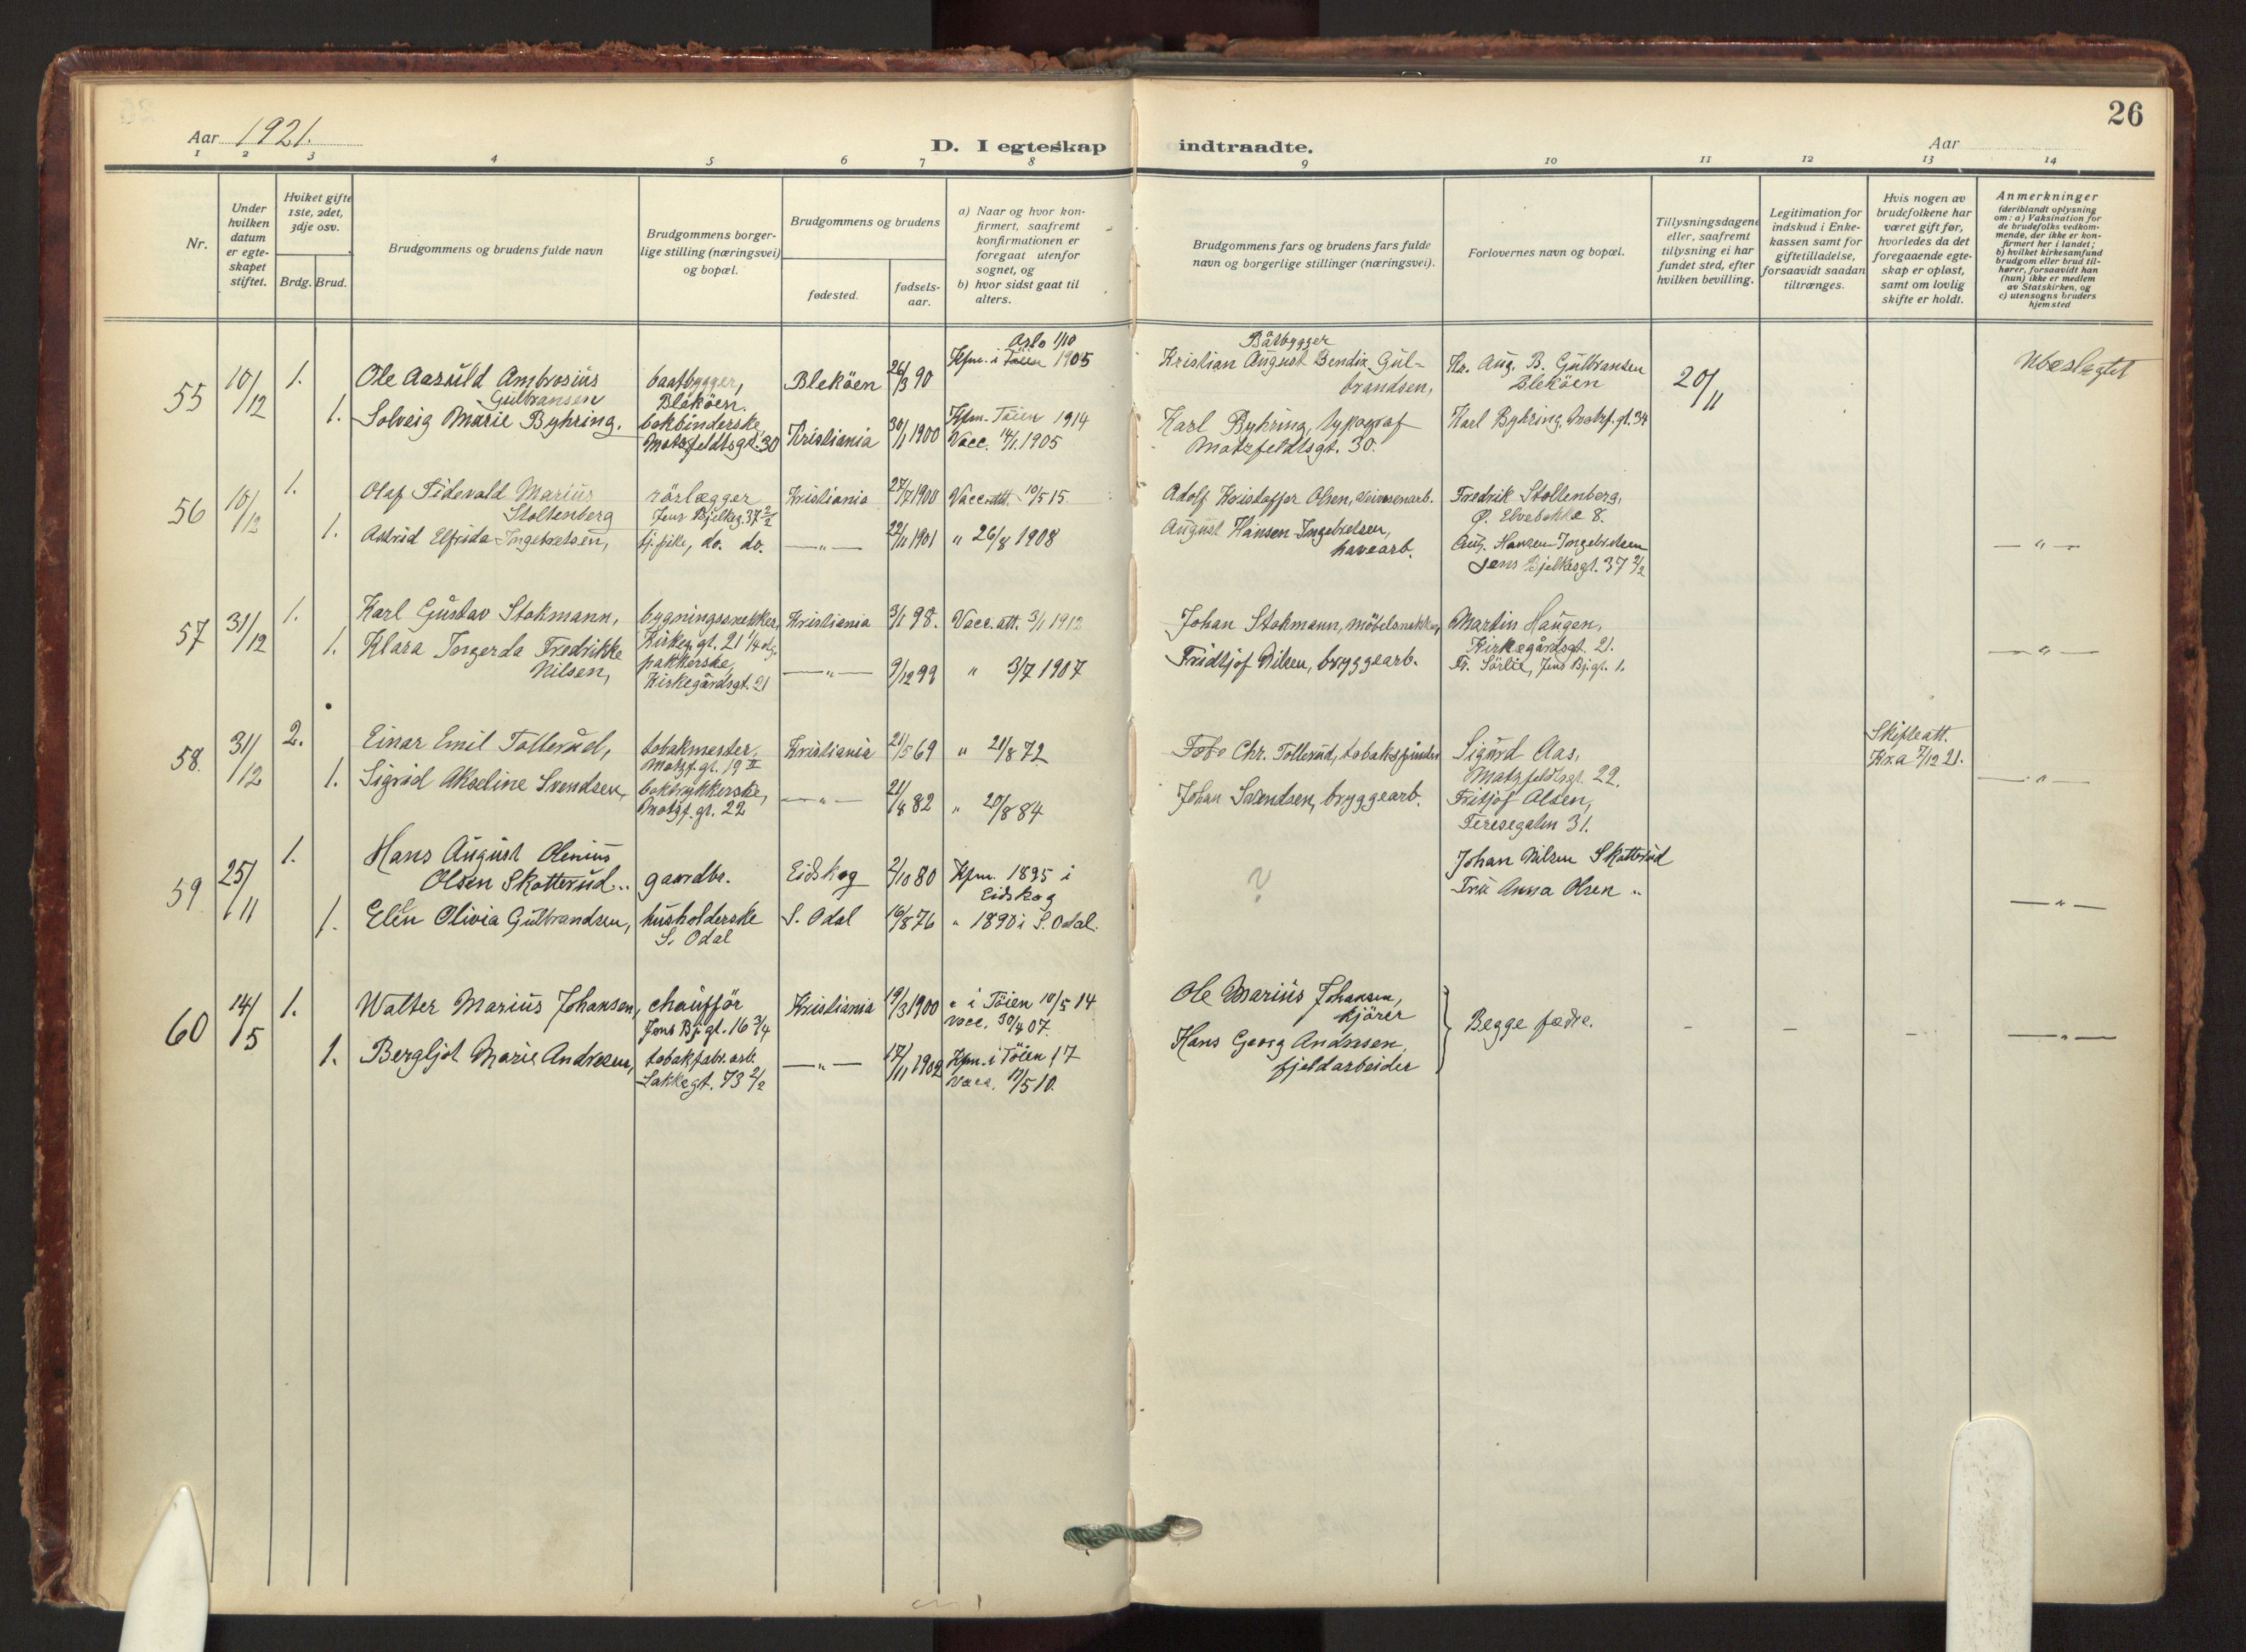 26
Aar 1921.
D. I egteskap indtraadte.
Aar
1 2 3 4 5 6 7 8 9 10 11 12 13 14
Nr.
Under hvilken datum er egteskapet stiftet.
Hviket gifte 1ste, 2det, 3dje osv.
Brdg. Brud.
Brudgommens og brudens fulde navn
Brudgommens borgerlige stilling (næringsvei) og bopæl.
Brudgommens og brudens
fødested.
fødselsaar.
a) Naar og hvor konfirmert, saafremt konfirmationen er foregaat utenfor sognet, og
b) hvor sidst gaat til alters.
Brudgommens fars og brudens fars fulde navn og borgerlige stillinger (næringsvei).
Forlovernes navn og bopæl.
Tillysningsdagene eller, saafremt tillysning ei har fundet sted, efter hvilken bevilling.
Legitimation for indskud i Enkekassen samt for giftetilladelse, forsaavidt saadan tiltrænges.
Hvis nogen av brudefolkene har været gift før, hvorledes da det foregaaende egteskap er opløst, samt om lovlig skifte er holdt.
Anmerkninger
(deriblandt oplysning om: a) Vaksination for de brudefolks vedkommende, der ikke er konfirmert her i landet; b) hvilket kirkesamfund brudgom eller brud tilhører, forsaavidt han (hun) ikke er medlem av Statskirken, og c) utensogns bruders hjemsted
55 10/12 1.
Ole Aasuld Ambrosius
Gulbransen
baatbygger,
Blekøen.
Blekøen 26/3 90
Oslo 1/10
Kfm. i Tøien 1905
Båtbygger
Kristian August Bendix Gul-
brandsen,
Kr. Aug. B. Gulbrandsen
Blekøen
20/11
Ubeslegtet
1. Solveig Marie Byhring.
bokbinderske
Motzfeldtsgt. 30
Kristiania 30/1 1900
Kfm. Tøien 1914
Vacc. 14/1 1905
Karl Byhring, typograf
Motzfeldtsgt. 30.
Karl Byhring, Motzf. gt. 34
56 10/12 1.
Olaf Tidevald Marius
Stoltenberg
rörlægger
Jens Bjelkeg. 37 2/2
Kristiania 27/7 1900 Vacc. att. 10/5 15
Adolf Kristoffer Olsen,
Fredrik Stoltenberg,
Ø. Elvebakke 8.
1. Astrid Elfrida Ingebretsen,
tj. pike, do. do.
—„— 22/11 1901 „ 26/8 1908
August Hansen Ingebretsen,
havearb.
Aug. Hansen Ingebretsen
Jens Bjelkesgt. 37 2/2
—„—
57 31/12 1.
Karl Gustav Stokmann,
bygningssnekker,
Kirkeg. gt. 21 1/4 etg.
Kristiania 3/1 98. Vacc. att. 3/1 1912
Johan Stokmann, möbelsnekker
Martin Haugen,
Kirkegårdsgt. 21.
1. Klara Ingerda Fredrikke
Nilsen,
pakkerske,
Kirkegårdsgt. 21
—„— 9/12 99 „ 3/7 1907
Fridtjof Nilsen, bryggearb.
Fr. Sörlie, Jens Bj. gt. 1.
—„—
58. 31/12 2.
Einar Emil Tollerud,
tobakmester,
Motzf. gt. 19 II
Kristiania 21/5 69 „ 21/8 72
Chr. Tollerud, tobakspinder
Sigurd Aas,
Motzfeldtsgt. 22.
Skifteatt.
Kr.a 7/12 21.
1. Sigrid Akseline Svendsen,
boktrykkerske,
Motzf. gt. 22
—„— 21/8 82 „ 20/8 84
Johan Svendsen, bryggearb.
Fritjof Olsen,
Teresegaten 31.
—„—
59 25/11 1.
Hans August Olenius
Olsen Skotterud
gaardbr.
Eidskog 2/10 80
Kfm. 1895 i
Eidskog
?
Johan Nilsen Skotterud
Fru Anna Olsen „
1. Elen Olivia Gulbrandsen,
husholderske
S. Odal
S. Odal 16/8 76 „ 1890 i S. Odal.
—„—
60 14/5 1.
Walter Marius Johansen,
chauffør
Jens Bj. gt. 16 3/4
Kristiania 19/3 1900
„ i Tøien 10/5 14
Vacc. 30/4 07.
Ole Marius Johansen,
kjører
Begge fædre.
– – –
1. Bergljot Marie Andresen,
tobakfabr. arb.
Lakkegt. 73 2/2
—„— 17/11 1902
Kfm. i Tøien 17
Vacc. 19/5 10.
Hans Georg Andresen,
fjeldarbeider
—„—